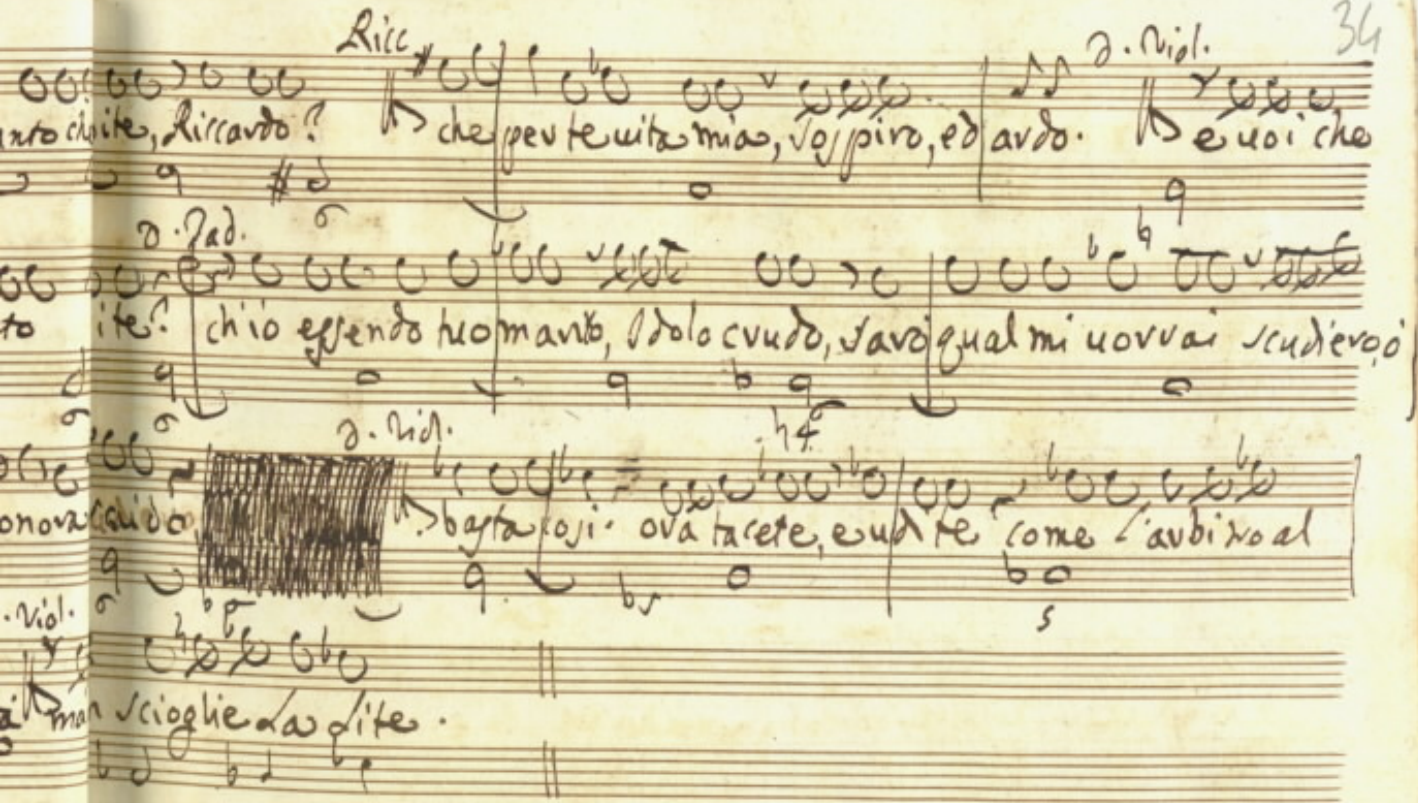 34
Ricc D. Viol.
ite, Riccardo? che per te uita mia, sospiro, ed ardo. e uoi che
D. Pad.
to ite? ch'io essendo tuo marito, Idolo crudo, sarò qual mi uorrai scudiero, ò
D. Viol.
basta così. ora tacete, e udite come l'arbitro al
. Viol.
scioglie la lite.